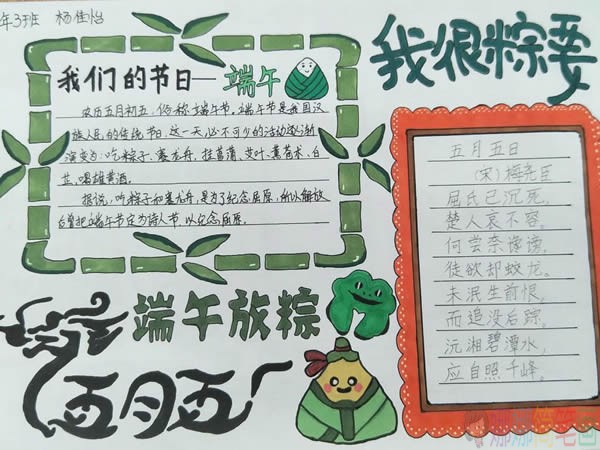 年3班 杨佳怡
我们的节日—端午
农历五月初五,俗称端午节。端午节是我国汉
族人民的传统节日,这一天必不可少的活动逐渐
演变为:吃粽子、赛龙舟、挂菖蒲、艾叶、薰苍术、白
芷、喝雄黄酒。
据说,吃粽子和赛龙舟,是为了纪念屈原,所以解放
后曾把端午节定为诗人节,以纪念屈原。
端午放粽
五月五
我很粽要
五月五日
(宋)梅尧臣
屈氏已沉死,
楚人哀不容。
何尝奈谗谤,
徒欲却蛟龙。
未泯生前恨,
而追没后踪,
沅湘碧潭水,
应自照千峰。